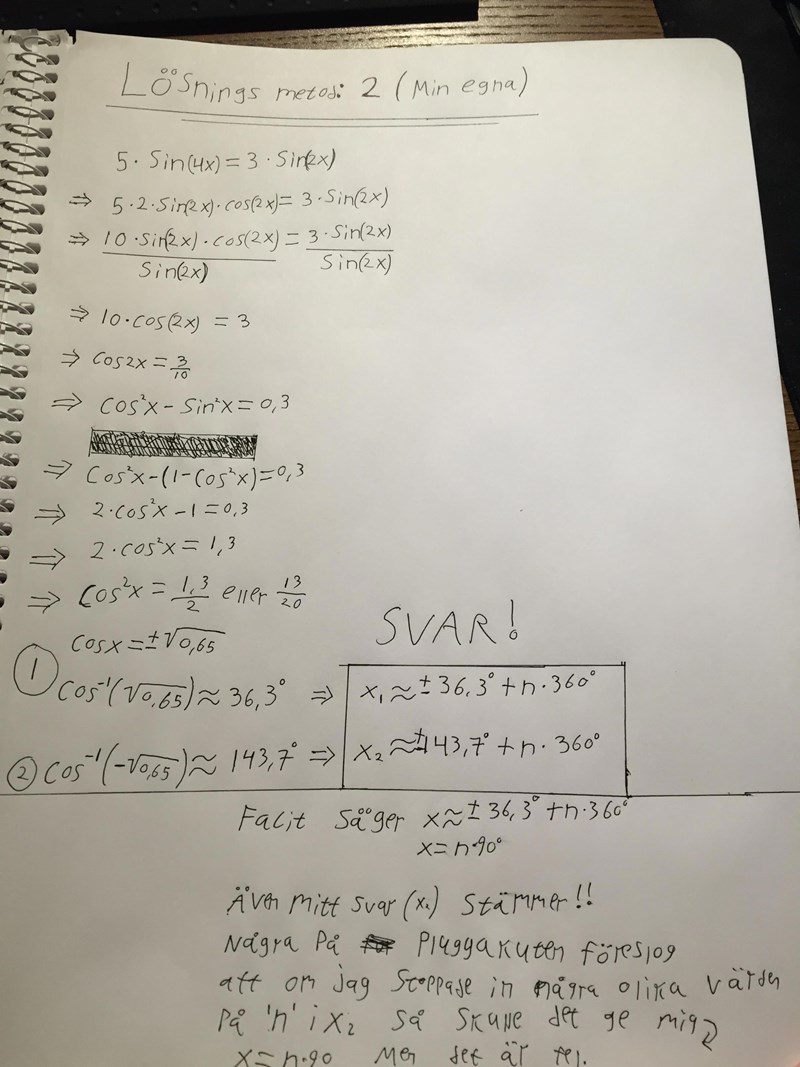 Lösnings metod: 2 (Min egna)
5 · Sin(4x) = 3 · Sin(2x)
⇒ 5·2·Sin(2x)·cos(2x) = 3·Sin(2x)
⇒ 10·sin(2x)·cos(2x)/Sin(2x) = 3·Sin(2x)/Sin(2x)
⇒ 10·cos(2x) = 3
⇒ Cos2x = 3/10
⇒ Cos²x - Sin²x = 0,3
⇒ Cos²x-(1-Cos²x)=0,3
⇒ 2·cos²x - 1 = 0,3
⇒ 2·cos²x = 1,3
⇒ Cos²x = 1,3/2 eller 13/20
Cosx = ±√0,65
SVAR!
① Cos⁻¹(√0,65) ≈ 36,3° ⇒ x₁ ≈ ± 36,3° + n·360°
② Cos⁻¹(-√0,65) ≈ 143,7° ⇒ x₂ ≈ ±143,7° + n·360°
Facit säger x ≈ ± 36,3° + n·360°
x = n·90°
Även mitt svar (x₂) stämmer!!
Några på Pluggakuten föreslog
att om jag stoppade in några olika värden
på 'n' i x₂ så skulle det ge mig
x = n·90 Men det är fel.